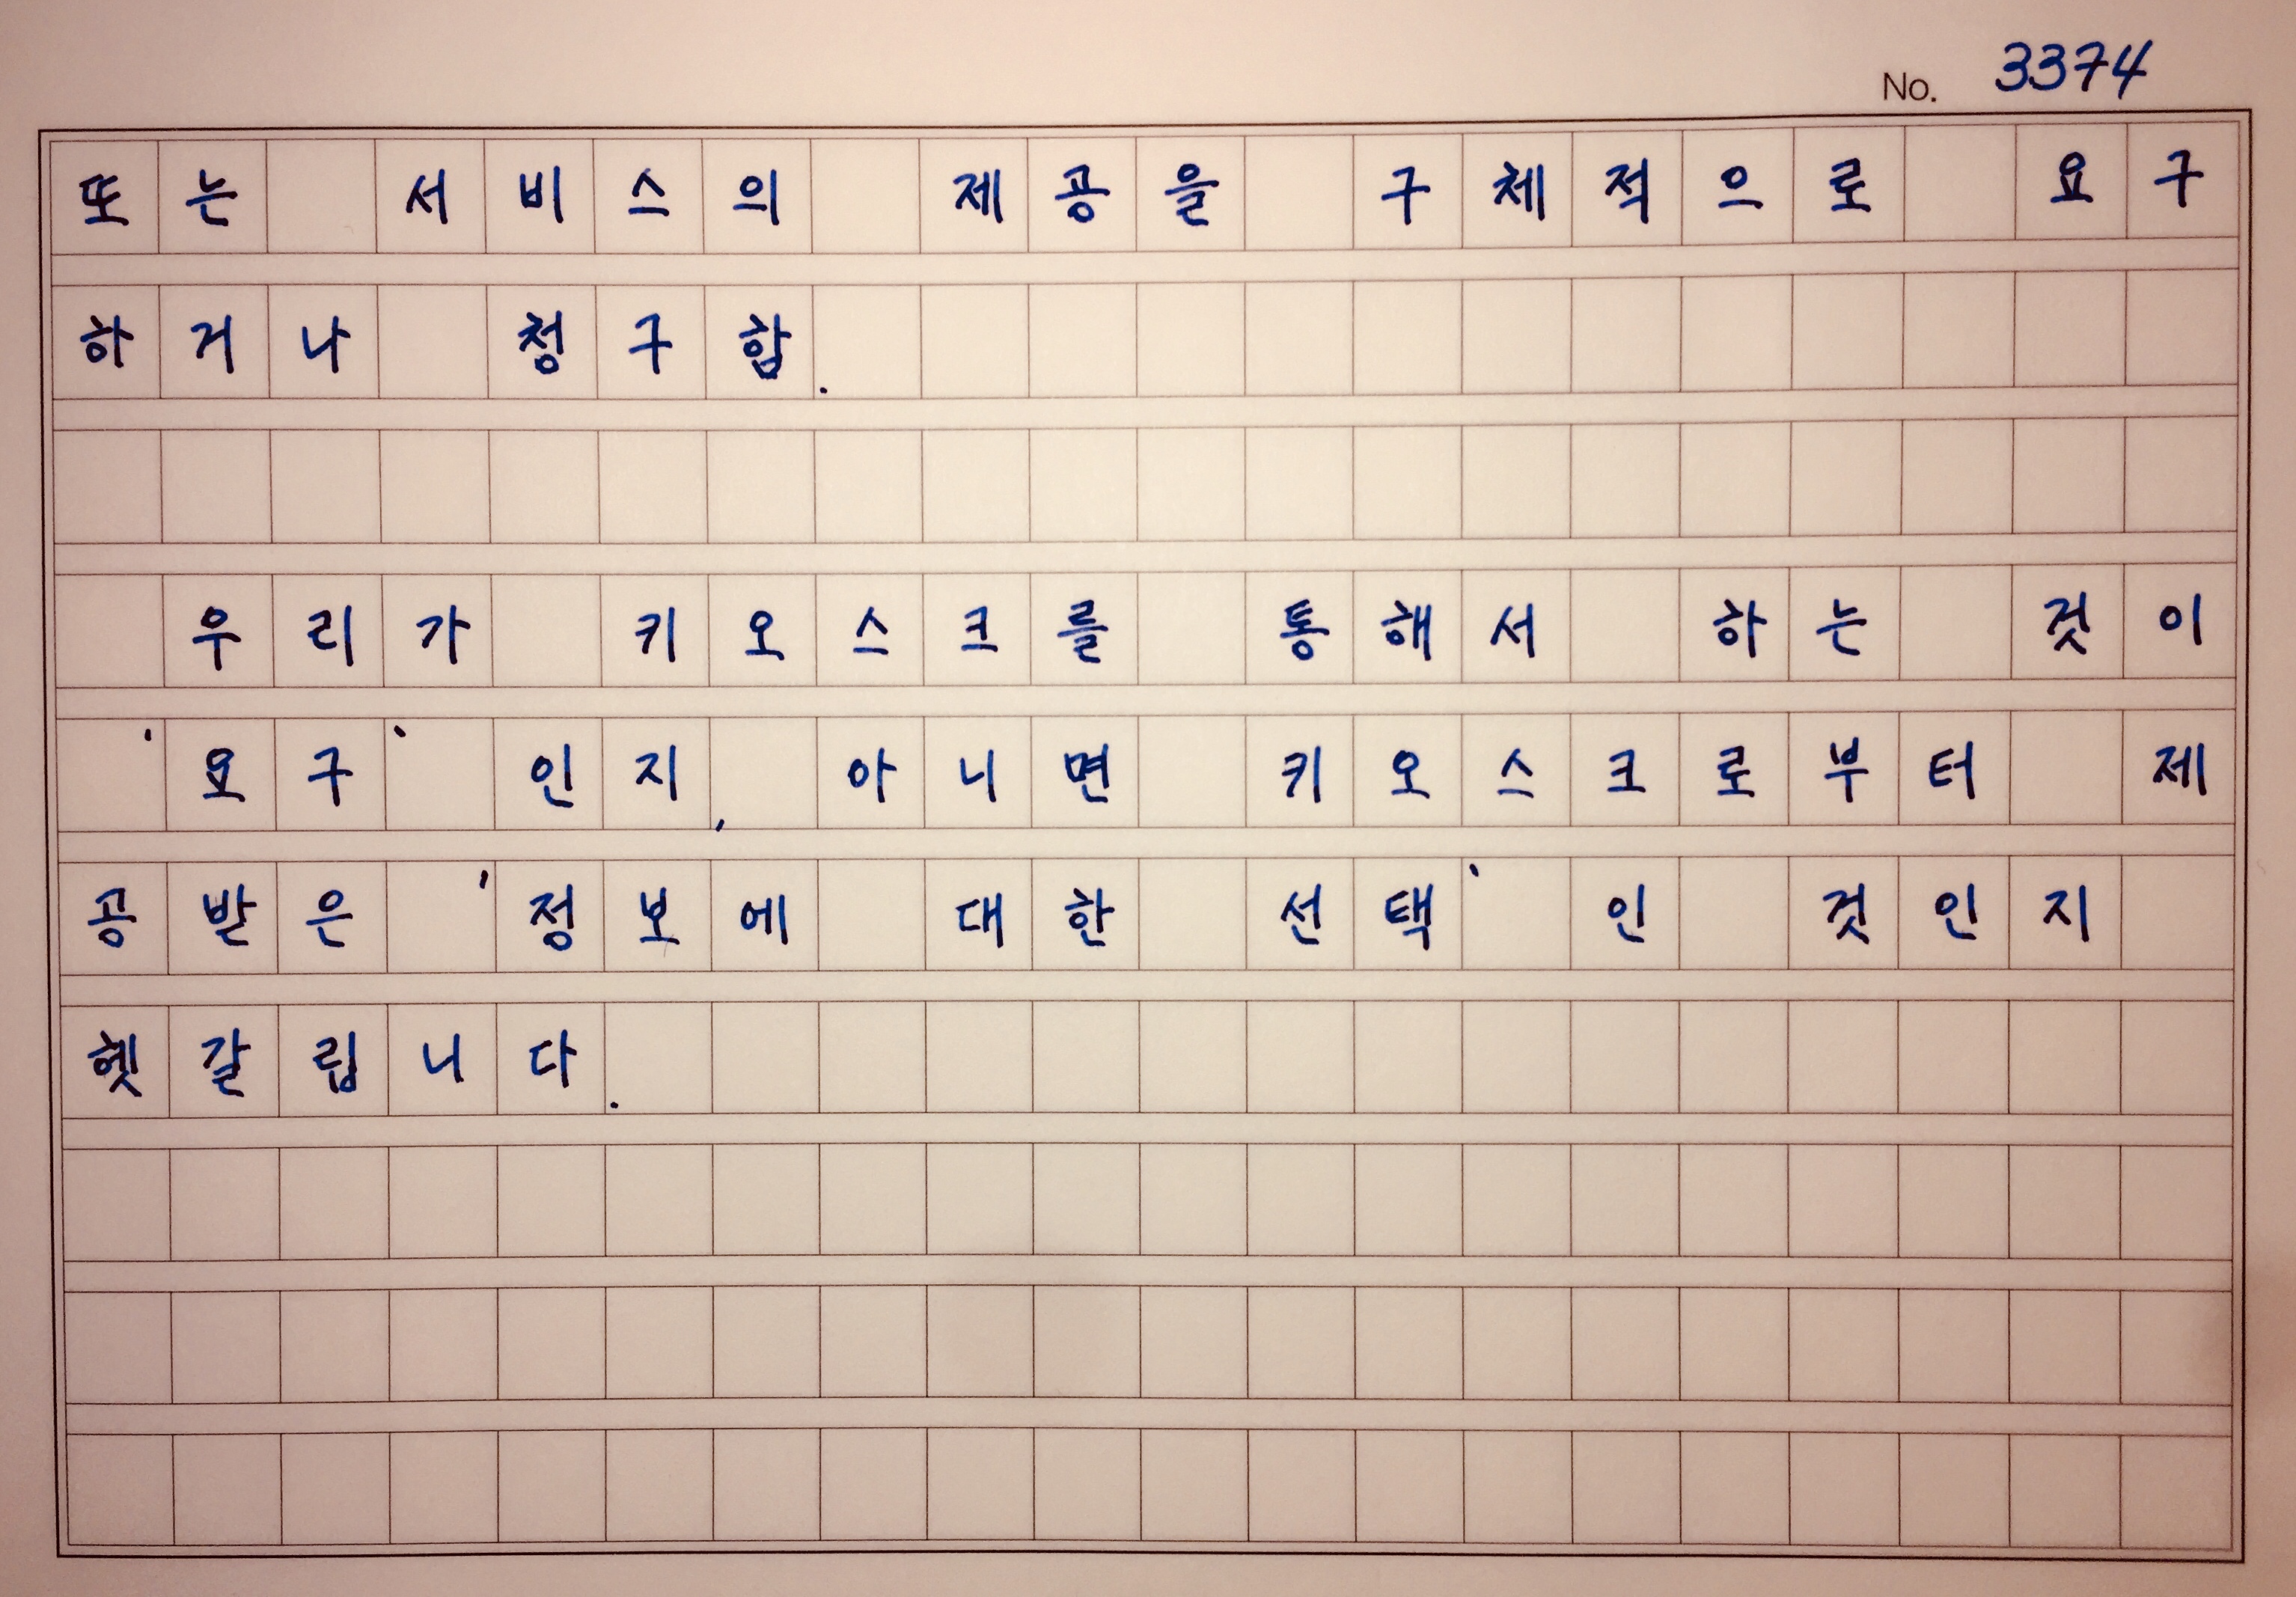 No. 3374
또는 서비스의 제공을 구체적으로 요구
하거나 청구함.
우리가 키오스크를 통해서 하는 것이
'요구' 인지, 아니면 키오스크로부터 제
공받은 '정보에 대한 선택' 인 것인지
헷갈립니다.